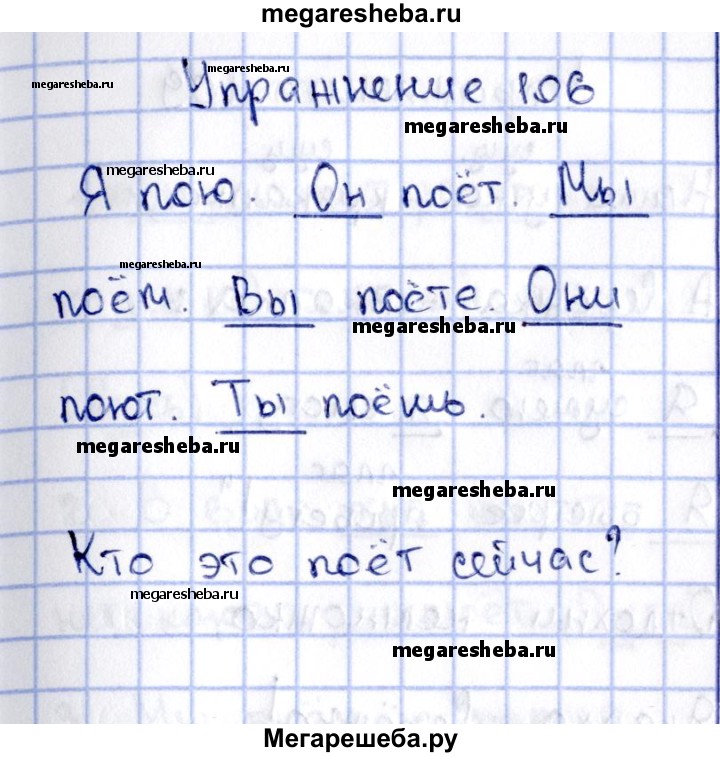 megaresheba.ru
megaresheba.ru
megaresheba.ru
Упражнение 106
megaresheba.ru
megaresheba.ru
Я пою. Он поёт. Мы
megaresheba.ru
поём. Вы поёте. Они
megaresheba.ru
поют. Ты поёшь.
megaresheba.ru
megaresheba.ru
Кто это поёт сейчас?
megaresheba.ru
megaresheba.ru
Мегарешеба.ру